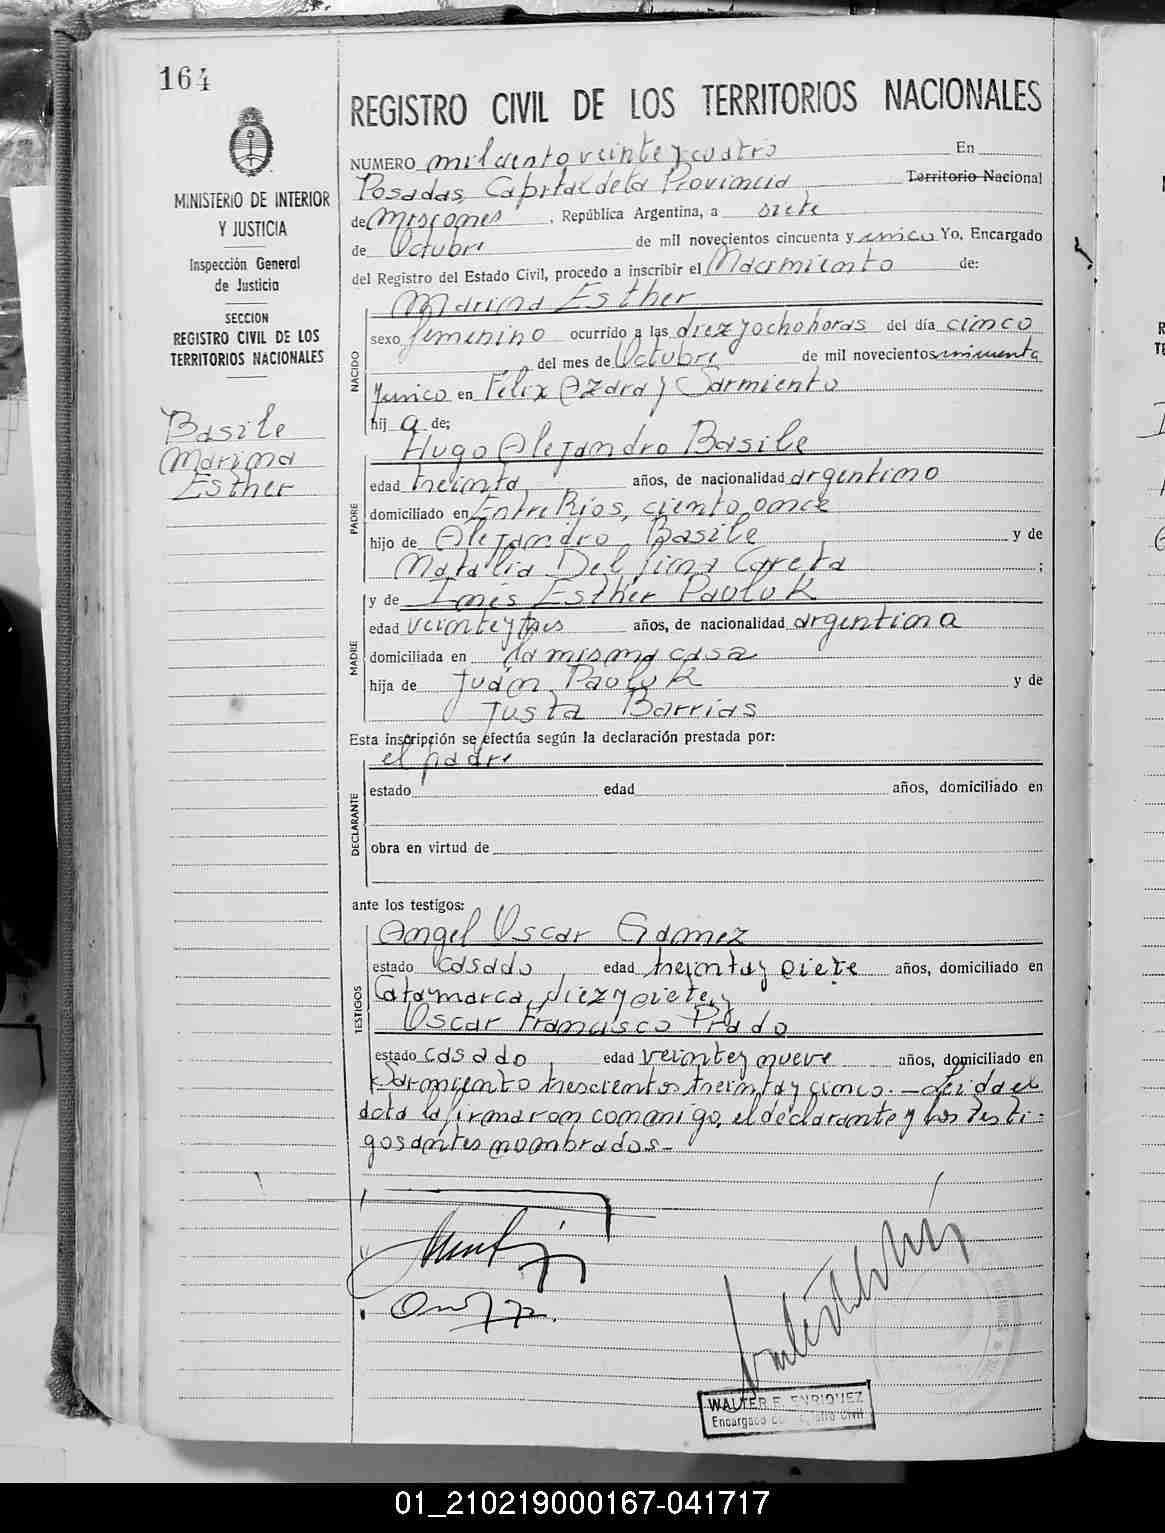 164
MINISTERIO DE INTERIOR
Y JUSTICIA
Inspección General
de Justicia
SECCION
REGISTRO CIVIL DE LOS
TERRITORIOS NACIONALES
Basile
Marina
Esther
REGISTRO CIVIL DE LOS TERRITORIOS NACIONALES
NUMERO mil ciento veinte y cuatro En
Posadas, Capital de la Provincia Territorio Nacional
de Misiones, República Argentina, a siete
de Octubre de mil novecientos cincuenta y cinco Yo, Encargado
del Registro del Estado Civil, procedo a inscribir el Nacimiento de:
Marina Esther
NACIDO
sexo femenino ocurrido a las diez y ocho horas del día cinco
del mes de Octubre de mil novecientos cincuenta
y cinco en Félix Azara y Sarmiento
hij a de;
Hugo Alejandro Basile
PADRE
edad treinta años, de nacionalidad argentino
domiciliado en Entre Rios, ciento once
hijo de Alejandro Basile y de
Natalia Delfina Careta ;
y de Inés Esther Pauluk
MADRE
edad veinte y tres años, de nacionalidad argentina
domiciliada en la misma casa
hija de Juan Pauluk y de
Justa Barrias
Esta inscripción se efectúa según la declaración prestada por:
el padre
DECLARANTE
estado edad años, domiciliado en
obra en virtud de
ante los testigos:
Angel Oscar Gómez
TESTIGOS
estado casado, edad treinta y siete años, domiciliado en
Catamarca, diez y siete, y
Oscar Francisco Prado
estado casado, edad veinte y nueve años, domiciliado en
Sarmiento trescientos treinta y cinco.— Leida el
acta la firmaron conmigo, el declarante y los testi-
gos antes nombrados.-
WALTER E. ENRIQUEZ
Encargado del Registro Civil
01_210219000167-041717